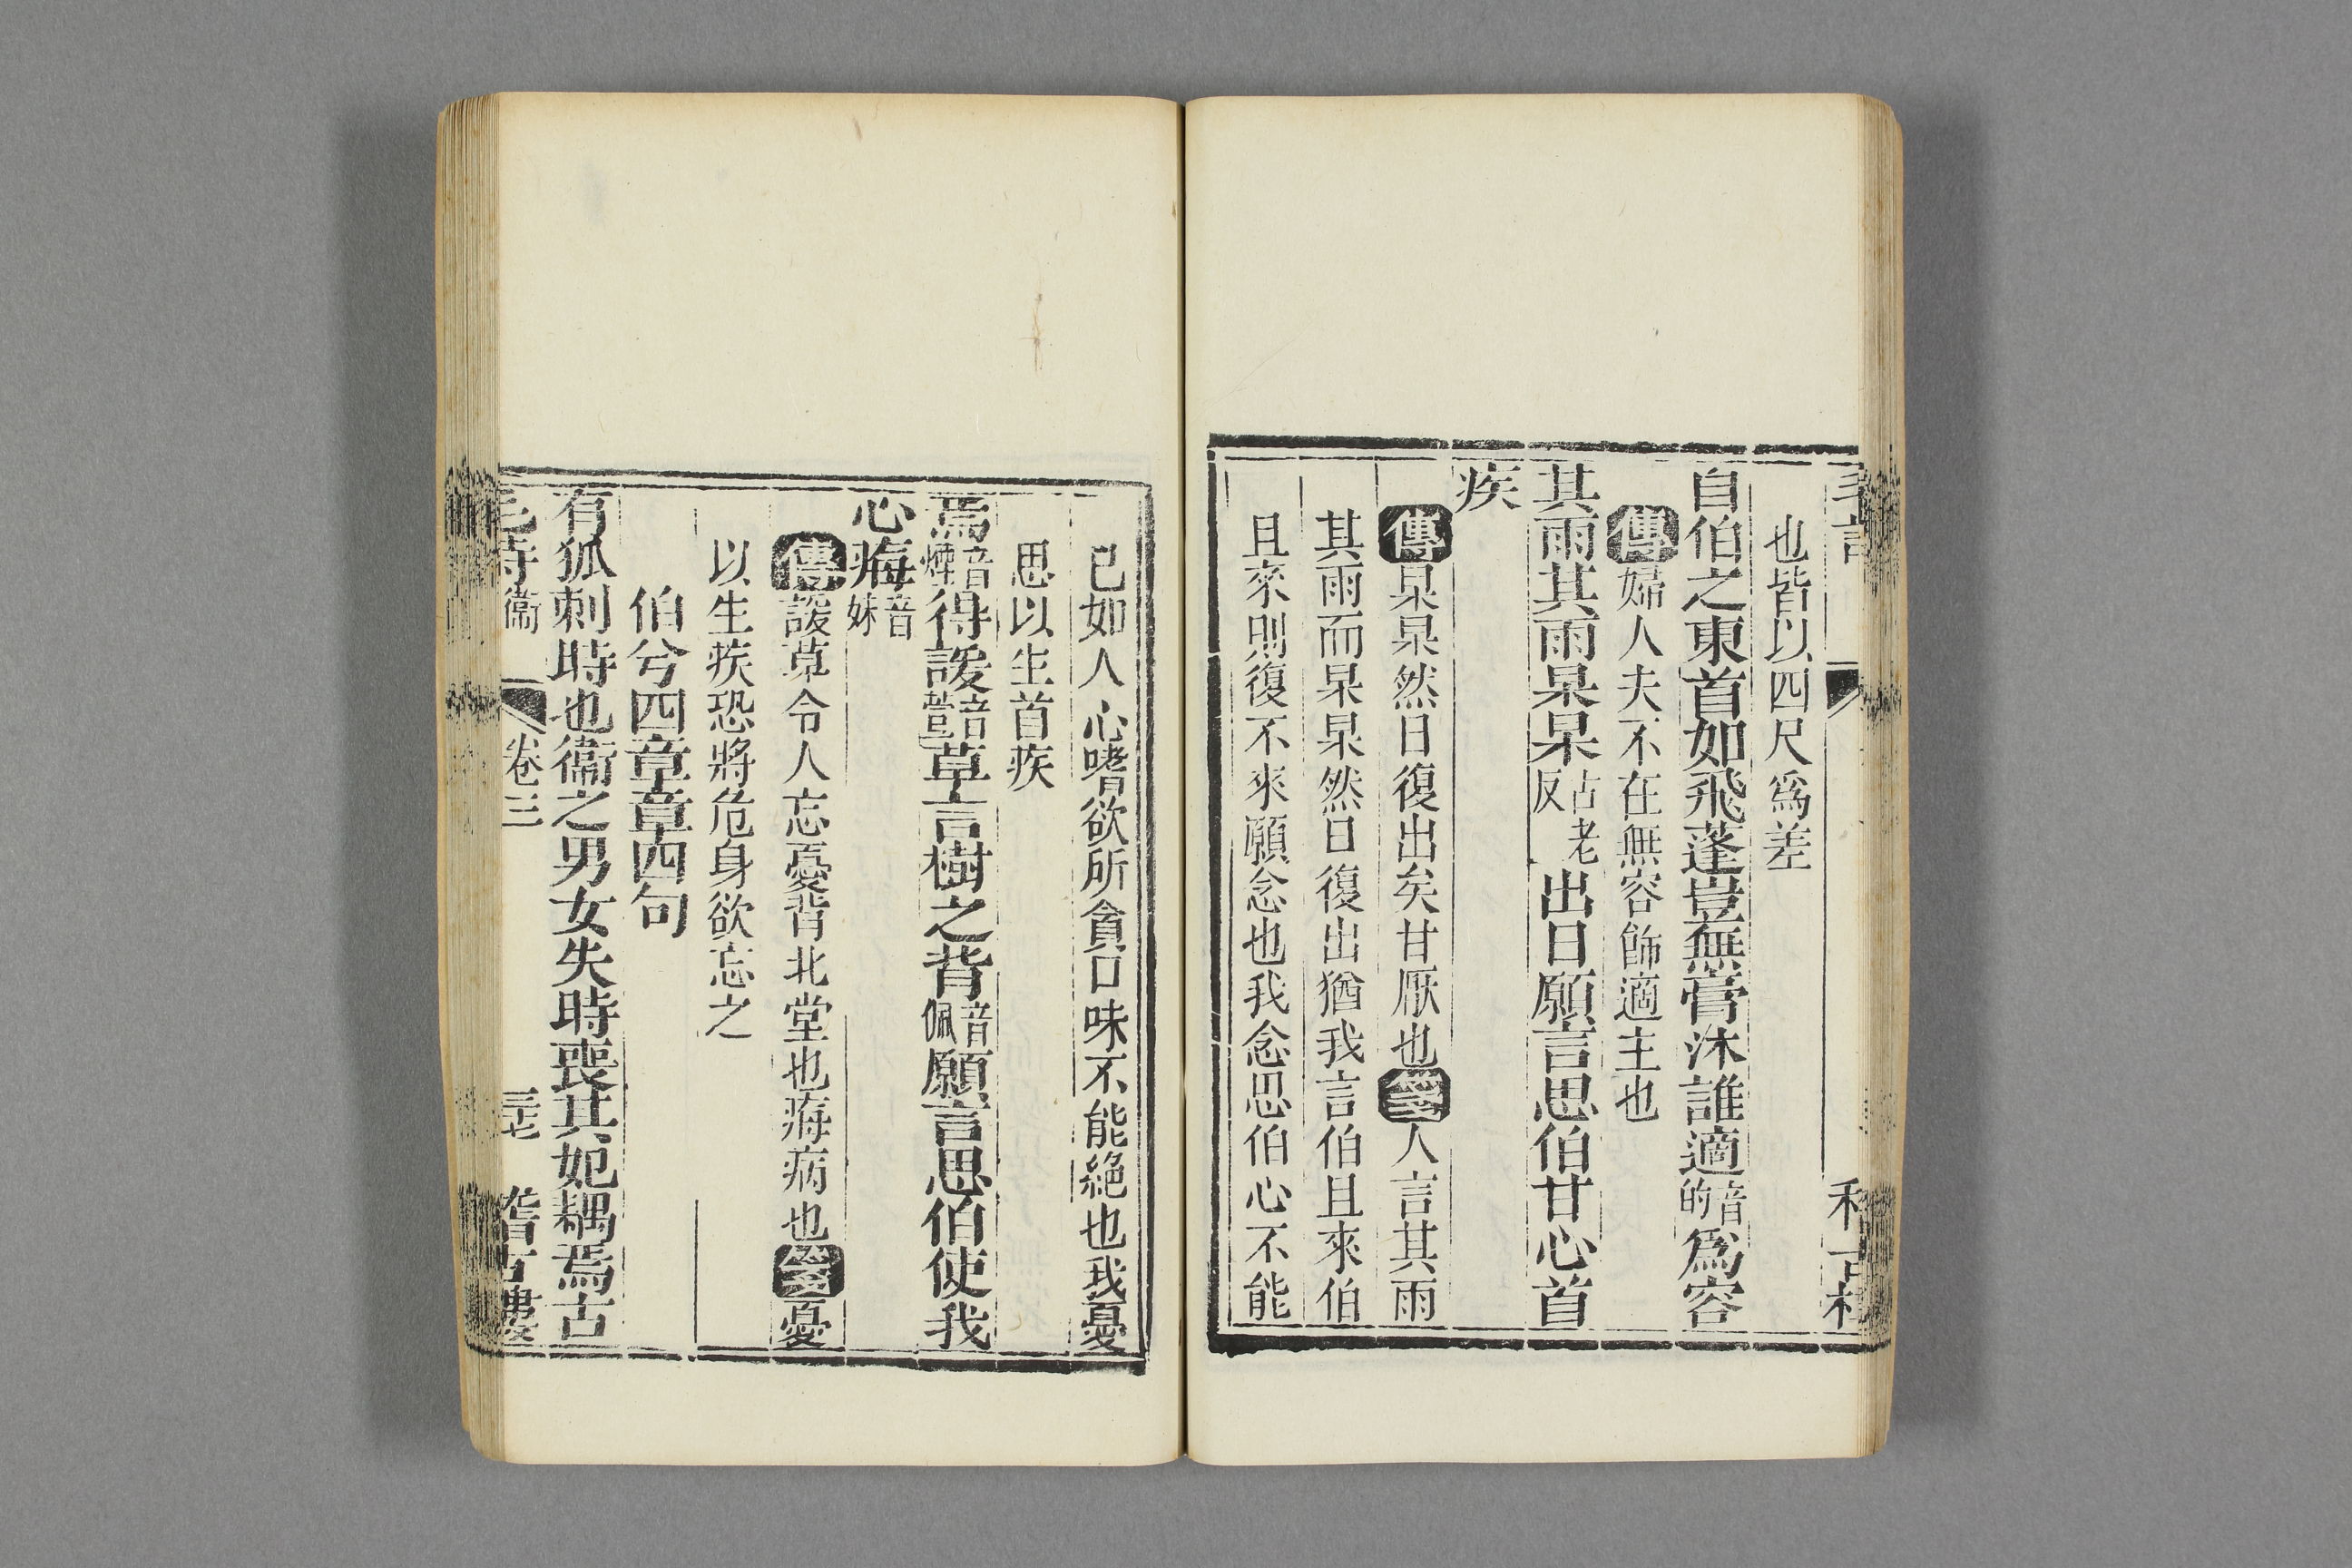 也皆以四尺爲差
自伯之東首如飛蓬豈無膏沐誰適音的爲容
傳婦人夫不在無容飾適主也
其雨其雨杲杲古老反出日願言思伯甘心首
疾
傳杲杲然日復出矣甘厭也箋人言其雨
其雨而杲杲然日復出猶我言伯且來伯
且來則復不來願念也我念思伯心不能
已如人心嗜欲所貪口味不能絕也我憂
思以生首疾
焉音煙得諼音萱草言樹之背音佩願言思伯使我
心痗音妹
傳諼草令人忘憂背北堂也痗病也箋憂
以生疾恐將危身欲忘之
伯兮四章章四句
有狐刺時也衞之男女失時喪其妃耦焉古
毛詩衞 卷三 三七 稽古樓